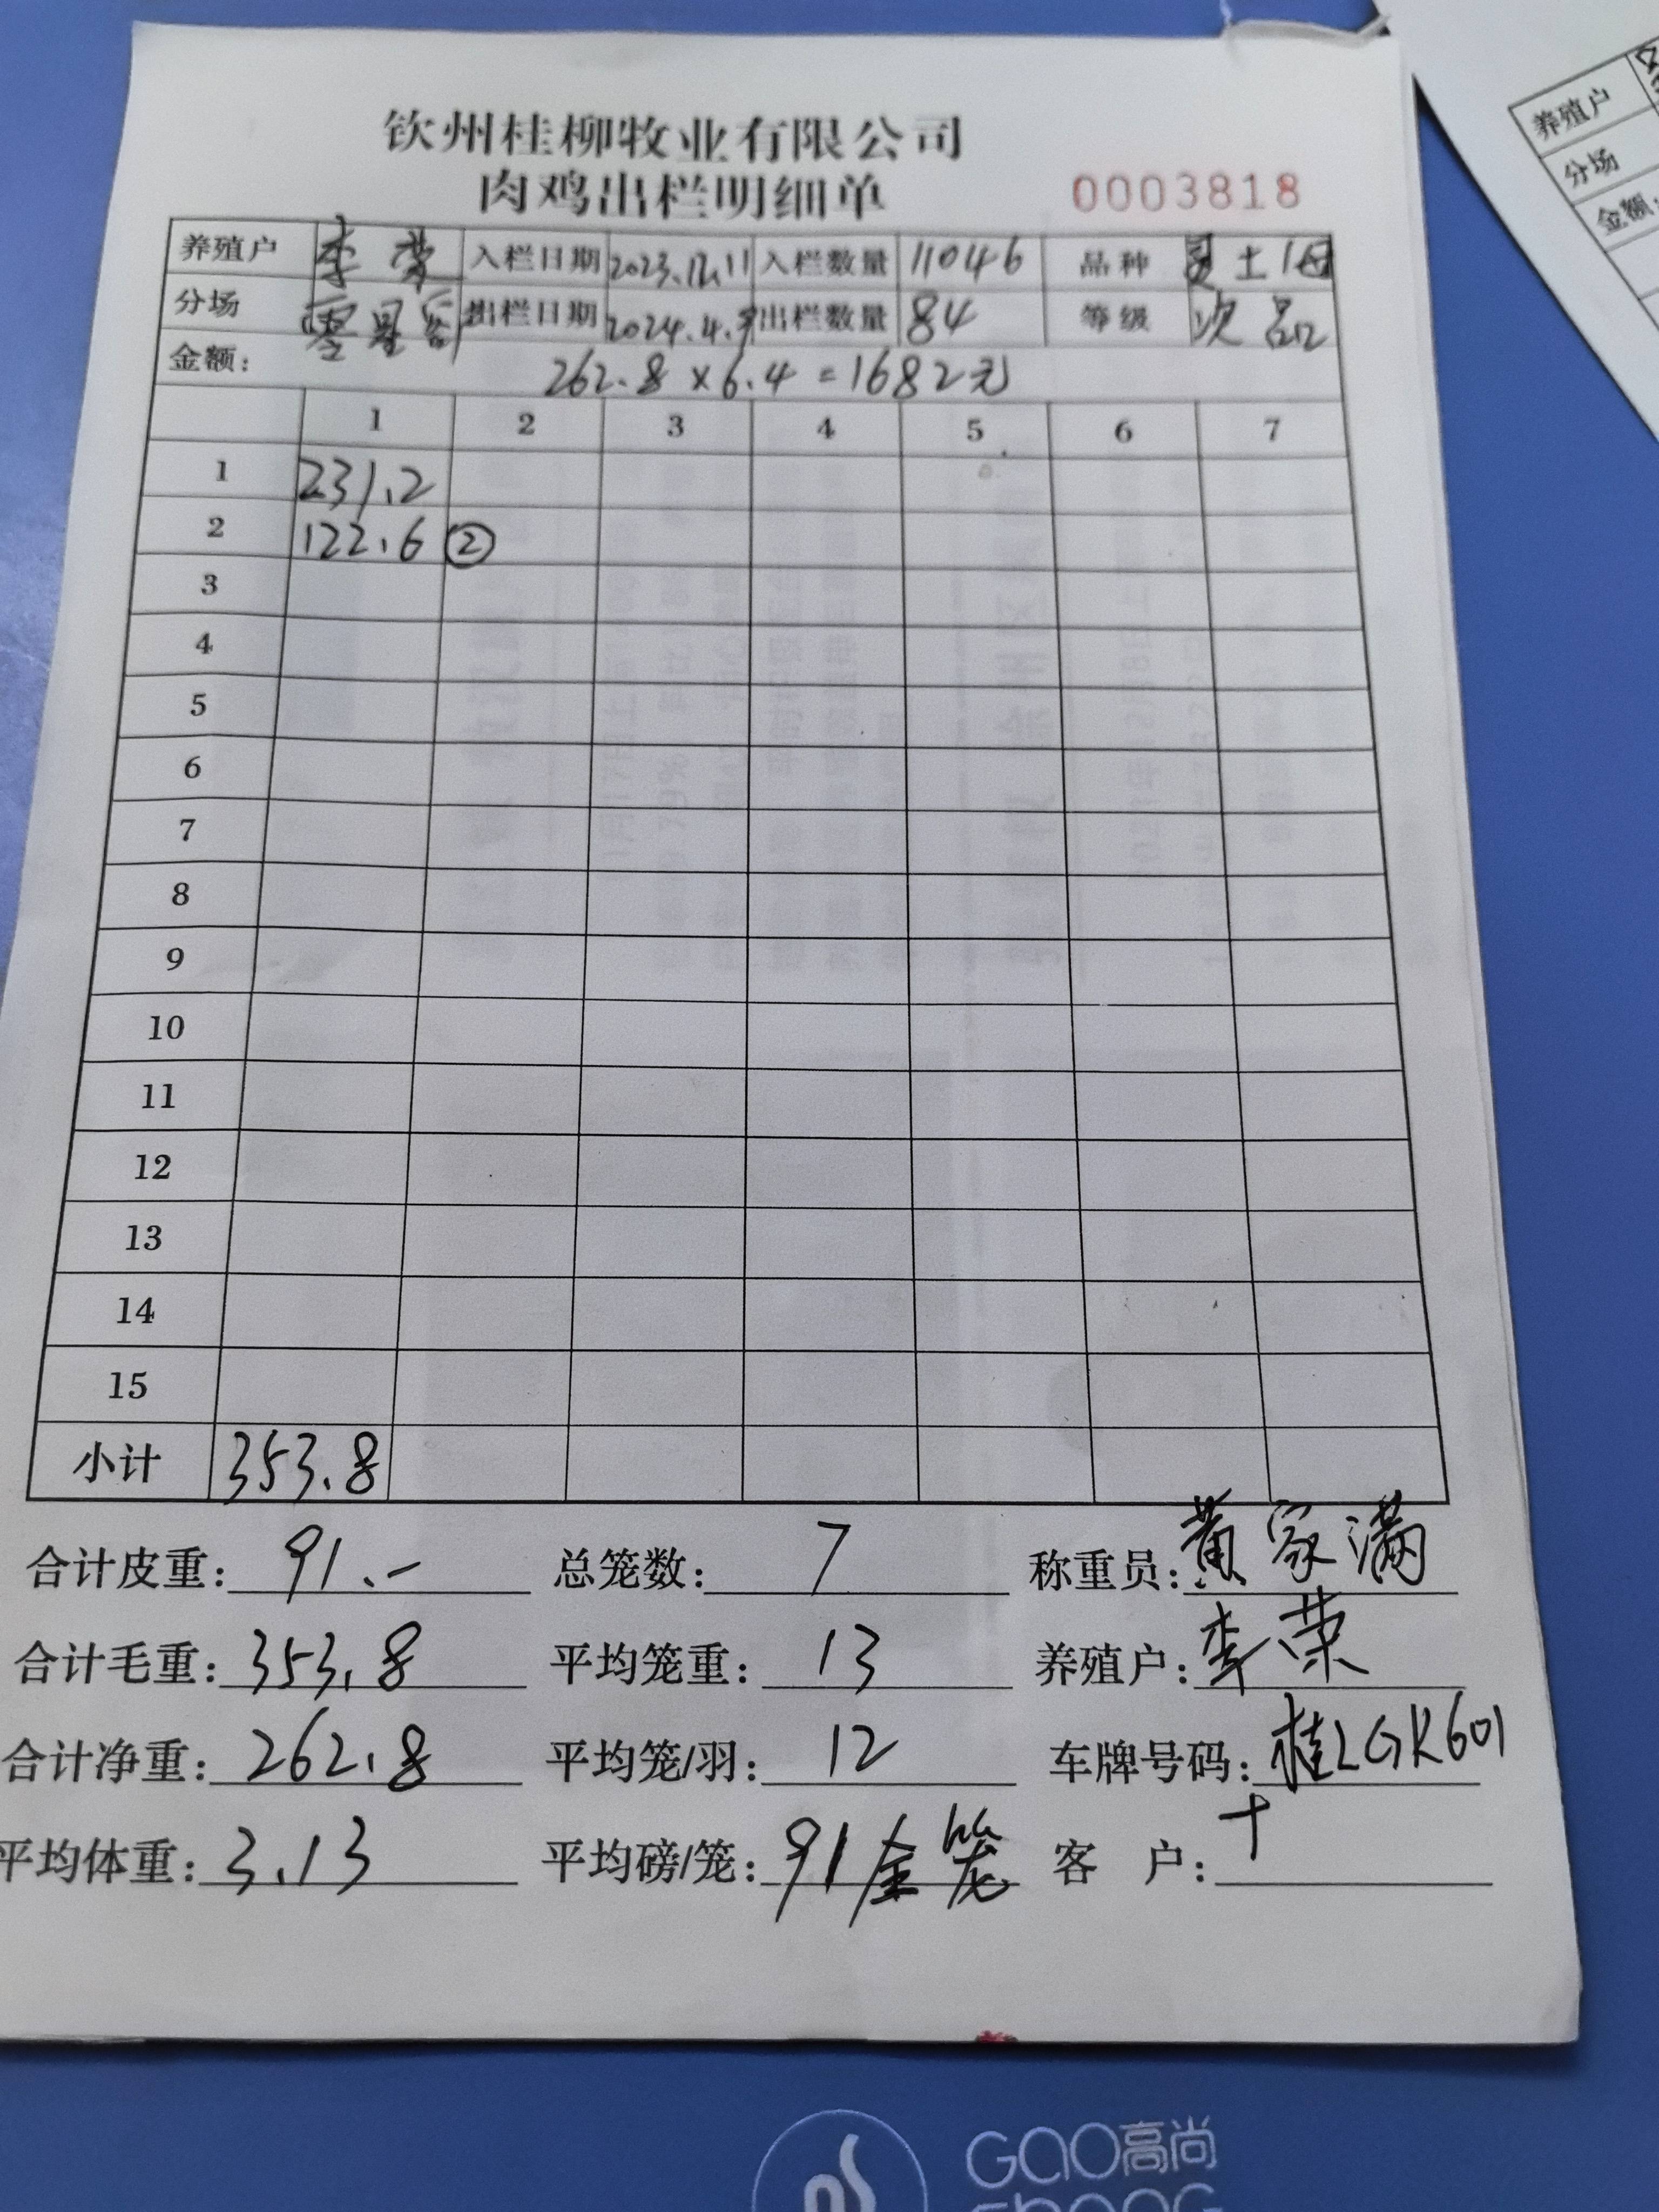 钦州桂柳牧业有限公司
肉鸡出栏明细单 0003818
养殖户 李荣 入栏日期 2023.12.11 入栏数量 11046 品种 土1母
分场 零星客 出栏日期 2024.4.9 出栏数量 84 等级 次品
金额: 262.8×6.4=1682元
1 2 3 4 5 6 7
1 231.2
2 122.6 ②
3
4
5
6
7
8
9
10
11
12
13
14
15
小计 353.8
合计皮重: 91.- 总笼数: 7 称重员: 黄家满
合计毛重: 353.8 平均笼重: 13 养殖户: 李荣
合计净重: 262.8 平均笼/羽: 12 车牌号码: 桂LGK601
平均体重: 3.13 平均磅/笼: 91全笼 客 户:
养殖户
分场
金额:
GAO高尚